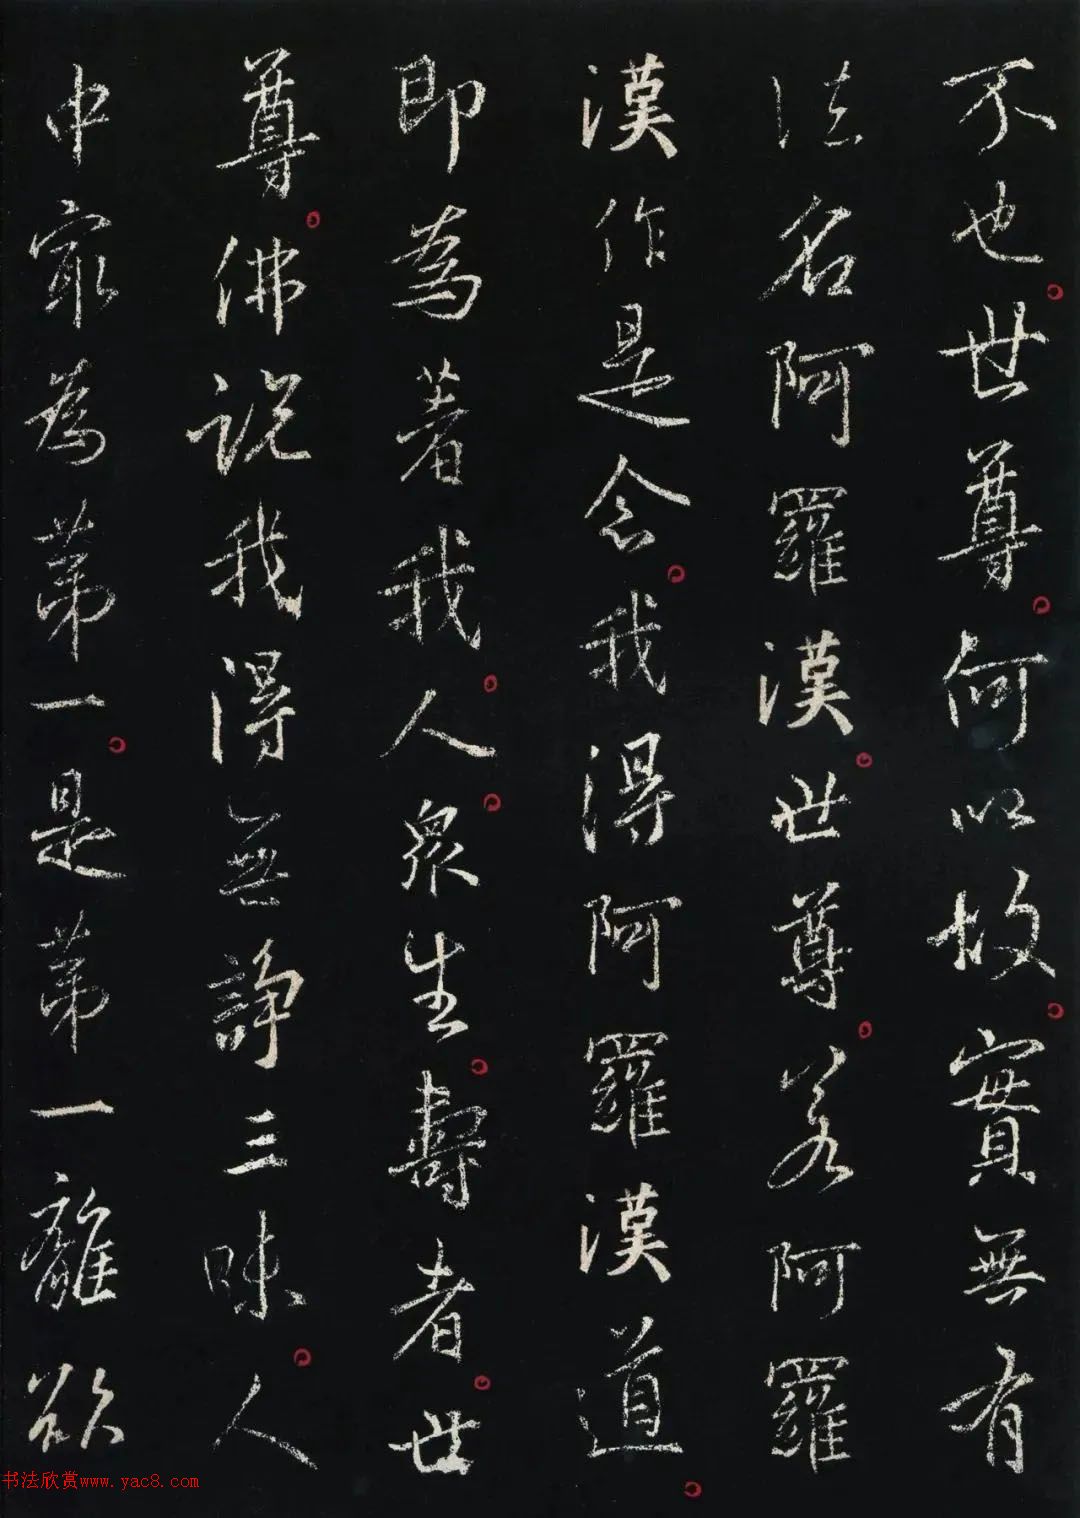 不也世尊何以故實無有
法名阿羅漢世尊若阿羅
漢作是念我得阿羅漢道
即為著我人衆生壽者世
尊佛說我得無諍三昧人
中寂為第一是第一離欲
书法欣赏www.yac8.com